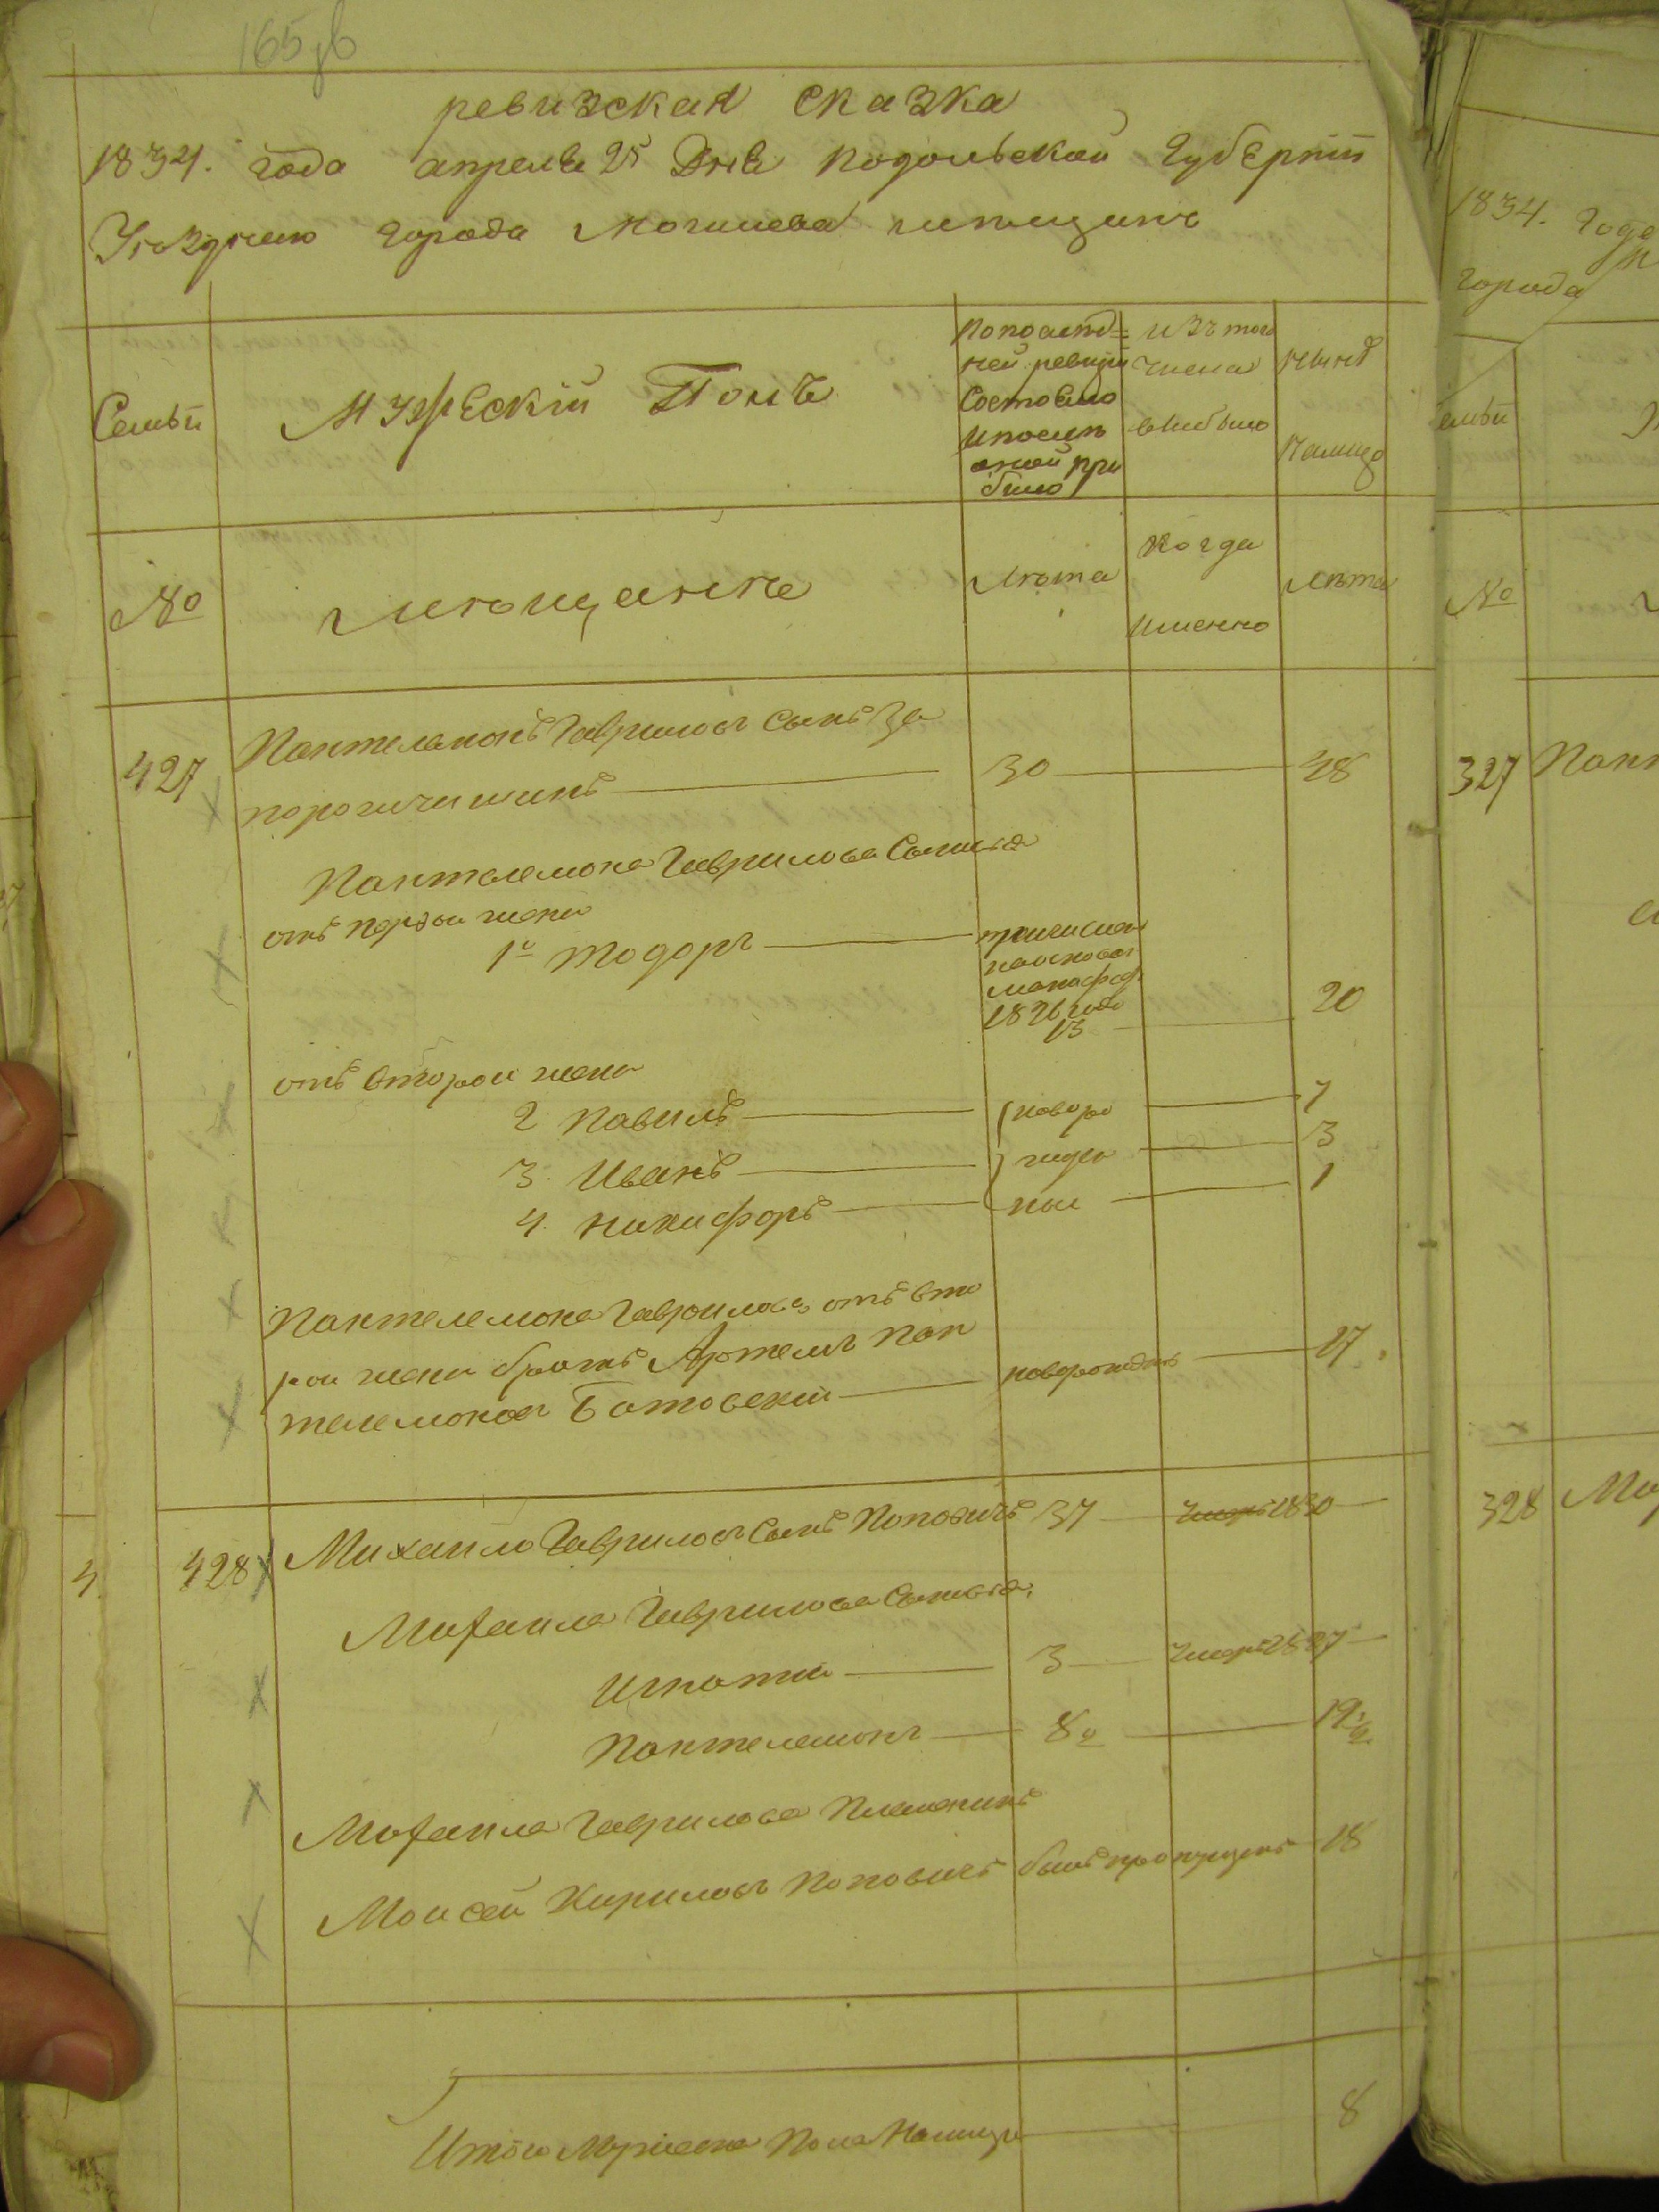 165 зв
ревизская сказка
1834. года апреля 25 дня Подольской Губерніи
Уезднаго города Могилева мещанъ
Семьи
Мужескій Полъ
По последней ревизіи состояло и после оной прибыло
Изъ того числа выбыло
Ныне на лицо
№
Мещане
Лета
Когда именно
Лета
427
Пантелемонъ Гавриловъ сынъ За
30
48
Пантелемона Гаврилова сыновья
отъ первой жены
1й Тодоръ
причислен
манифес.
1826 года
13
20
отъ второй жены
2 Павилъ
7
3. Иванъ
3
4. Никифоръ
1
новоро
жден
ные
Пантелемона Гаврилова, отъ вто
рой жены братъ Артемъ Пан
телемоновъ
новорожденъ
17
4.
428
Михаило Гавриловъ сынъ Поповичъ
37
умеръ 1830
Михаила Гаврилова сыновья:
Игнатий
3
умеръ 1827
Пантелемонъ
19 1/2
Михаила Гаврилова племеникъ
Моисей Кириловъ Поповичъ
былъ пропущенъ
18
Итого мужеска пола налицо
8
1834. Года
города
семьи
№
327
Пант
328
Ми